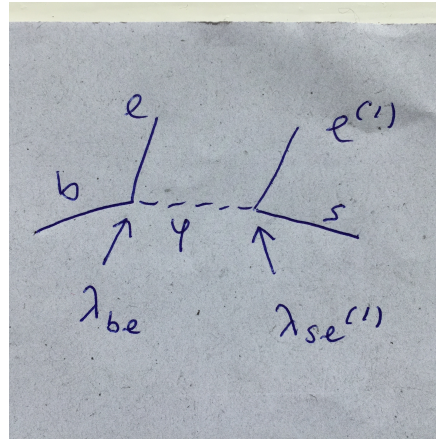 e e^(1)
b φ s
λ_be λ_se^(1)